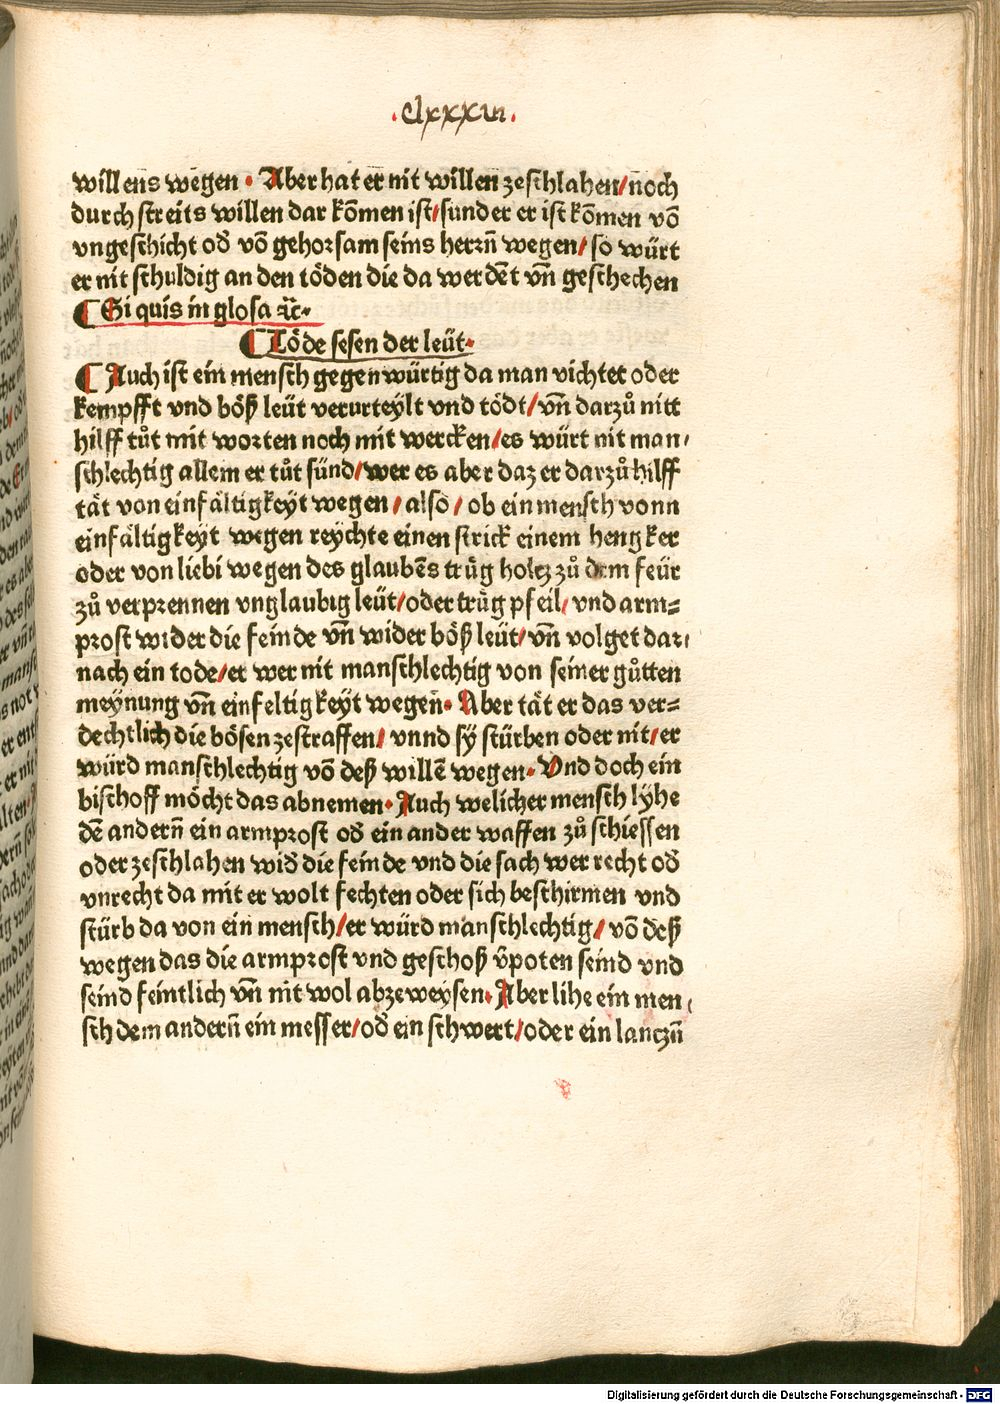 .clxxxiii.
willens wegen · Aber hat er nit willen zeschlahen/noch
durch streits willen dar kōmen ist/sunder er ist kōmen vō
vngeschicht od̄ vō gehorsam seins herrn̄ wegen/so würt
er nit schuldig an den töden die da werdēt vn̄ geschechen
¶ Si quis in glosa ⁊c̄·
¶ Töde sesen der leüt·
¶ Auch ist ein mensch gegenwürtig da man vichtet oder
kempfft vnd böß leüt verurteylt vnd tödt/vn̄ darzů nitt
hilff tůt mit worten noch mit wercken/es würt nit man⸗
schlechtig allein er tůt sünd/wer es aber daz er darzů hilff
tät von einfältigkeyt wegen/also/ob ein mensch vonn
einfältigkeyt wegen reychte einen strick einem hengker
oder von liebi wegen des glaubēs trüg holtz zů dem feür
zů verprennen vnglaubig leüt/oder trüg pfeil/vnd arm⸗
prost wider die feinde vn̄ wider böß leüt/vn̄ volget dar⸗
nach ein tode/er wer nit manschlechtig von seiner gůtten
meynung vn̄ einfeltigkeyt wegen· Aber tät er das ver⸗
dechtlich die bösen zestraffen/vnnd sÿ stürben oder nit/er
würd manschlechtig vō deß willē wegen· Vnd doch ein
bischoff möcht das abnemen· Auch welicher mensch lyhe
dē andern̄ ein armprost od̄ ein ander waffen zů schiessen
oder zeschlahen wid̄ die feinde vnd die sach wer recht od̄
vnrecht da mit er wolt fechten oder sich beschirmen vnd
stürb da von ein mensch/er würd manschlechtig/vō deß
wegen das die armprost vnd geschoß v̄poten seind vnd
seind feintlich vn̄ nit wol abzeweysen· Aber lihe ein men⸗
sch dem andern̄ ein messer/od̄ ein schwert/oder ein lantzn̄
Digitalisierung gefördert durch die Deutsche Forschungsgemeinschaft - DFG